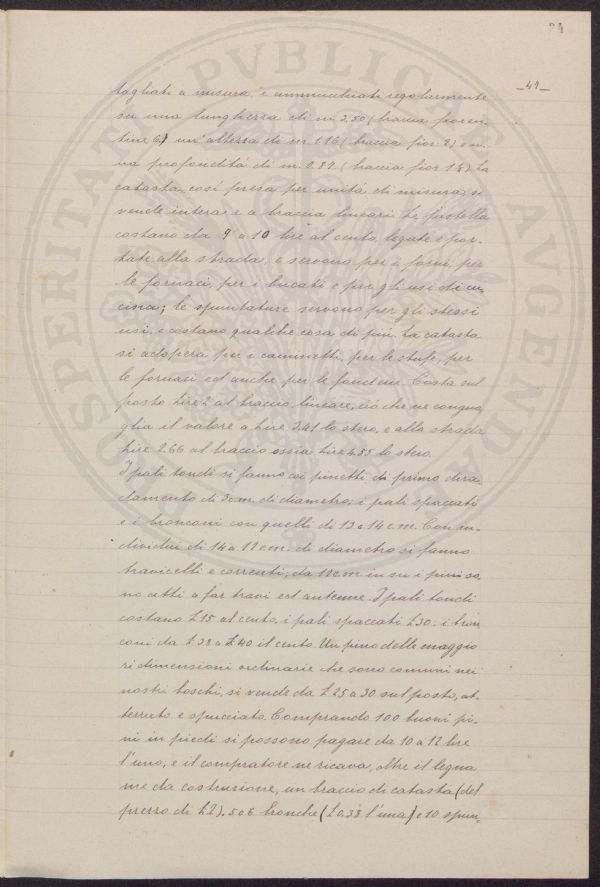 24
_41_
tagliati a misura, e ammucchiati regolarmente
su una lunghezza di m 3.50 (braccia fioren-
tine 6) un'altezza di m. 1.16 (braccia fior. 2) e u-
na profondità di m. 0.87 (braccia fior 1½). La
catasta così presa per unità di misura, si
vende intera e a braccia lineari. Le fastella
costano da 9 a 10 lire al cento, legate e por-
tate alla strada, e servono per i forni, per
le fornaci, per i bucati e per gli usi di cu-
cina; le spuntature servono per gli stessi
usi, e costano qualche cosa di più. La catasta
si adopera per i caminetti, per le stufe, per
le fornaci ed anche per le fonderie. Costa sul
posto Lire 2 al braccio lineare, ciò che ne ragguaglia
glia il valore a Lire 3.41 lo stero, e alla strada
Lire 2.66 al braccio ossia Lire 4.55 lo stero.
I pali tondi si fanno coi pinetti di primo dira-
damento di 3 cm. di diametro; i pali spaccati
e i bronconi con quelli di 13 a 14 c.m. Con in-
dividui di 14 a 18 cm. di diametro si fanno
travicelli e correnti; da 18 cm. in su i pini so-
no atti a far travi ed antenne. I pali tondi
costano £15 al cento, i pali spaccati £30. i bron
coni da £38 a £40 il cento. Un pino delle maggio
ri dimensioni ordinarie che sono comuni nei
nostri boschi, si vende da £25 a 30 sul posto, at-
terrato e spicciato. Comprando 100 buoni pi-
ni in piedi si possono pagare da 10 a 12 lire
l'uno, e il compratore ne ricava, oltre il legna
me da costruzione, un braccio di catasta (del
prezzo di £2). 5 o 6 bronche (£0.38 l'una) e 10 spun-
PVBLICAE
AVGENDAE
PROSPERITATI